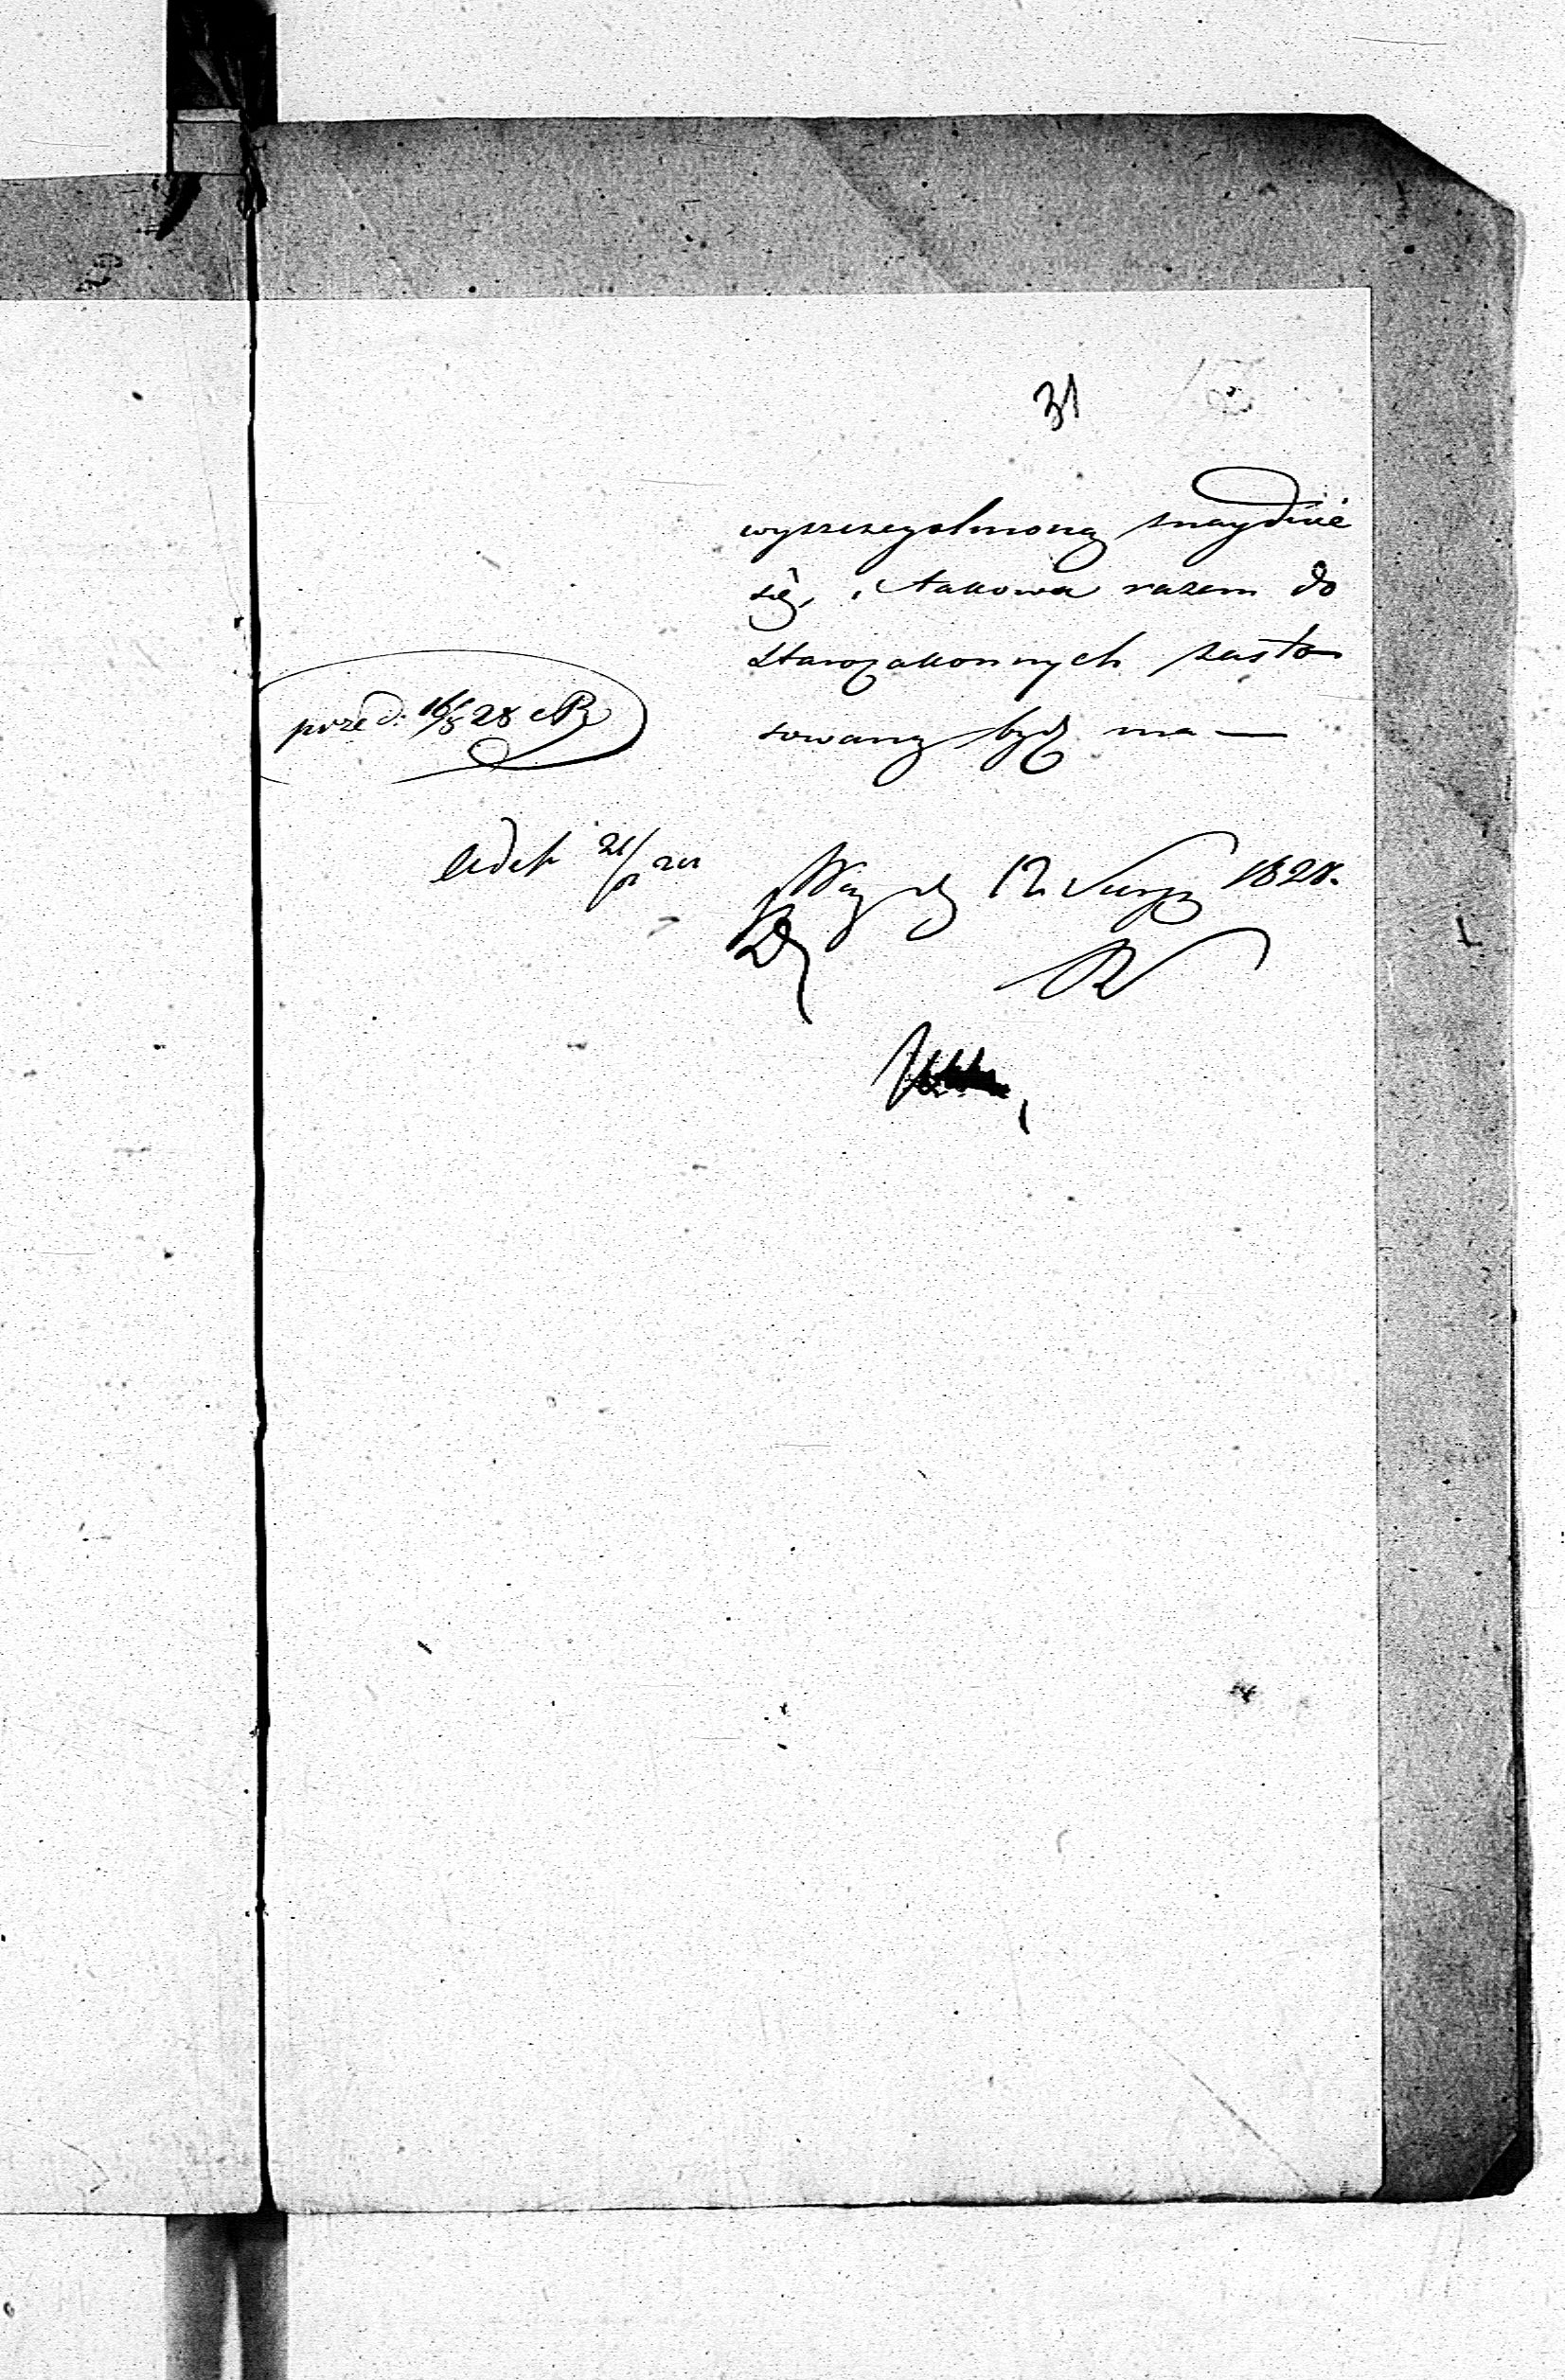 31
wyszczegulnioną znayduie
się, i takowa razem do
Starozakonnych zasto
sowaną bydź ma —
przed: 16/8 28
21/8
12 Sierp 1828.